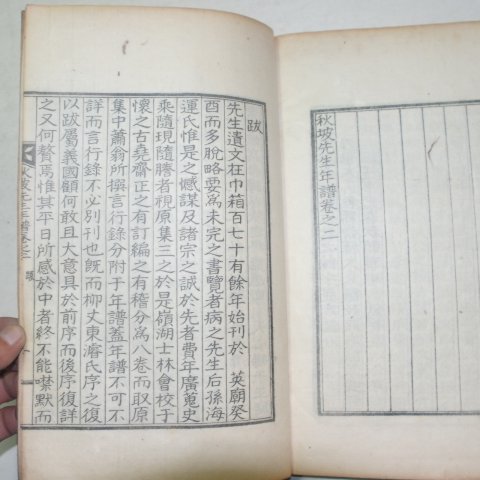 秋坡先生年譜卷之二
跋
先生遺文在巾箱百七十有餘年始刊於 英廟癸
酉而多脫略要爲未完之書覽者病之先生后孫海
運氏惟是之慽謀及諸宗之誠於先者費年廣蒐史
乘隨現隨謄者視原集三之於是嶺湖士林會校于
懷之古堯齋正之有訂編之有稽分爲八卷而取原
集中蕭翁所撰言行錄分附于年譜蓋年譜不可不
詳而言行錄不必別刊也旣而柳丈東濬氏序之復
以跋屬義國顧何敢且大意具於前序而後序復詳
之又何贅焉惟其平日所感於中者終不能嘿默而
秋坡先生年譜卷之二 跋 一